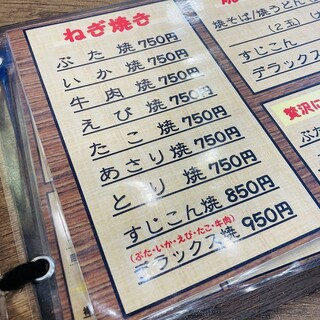 ねぎ焼き
ぶた焼750円
いか焼750円
牛肉焼750円
えび焼750円
たこ焼750円
あさり焼750円
とり焼750円
すじこん焼850円
(ぶた・いか・えび・たこ・牛肉)
デラックス焼950円
焼そば/焼うどん
(2玉)
すじこん
デラックス
贅沢に